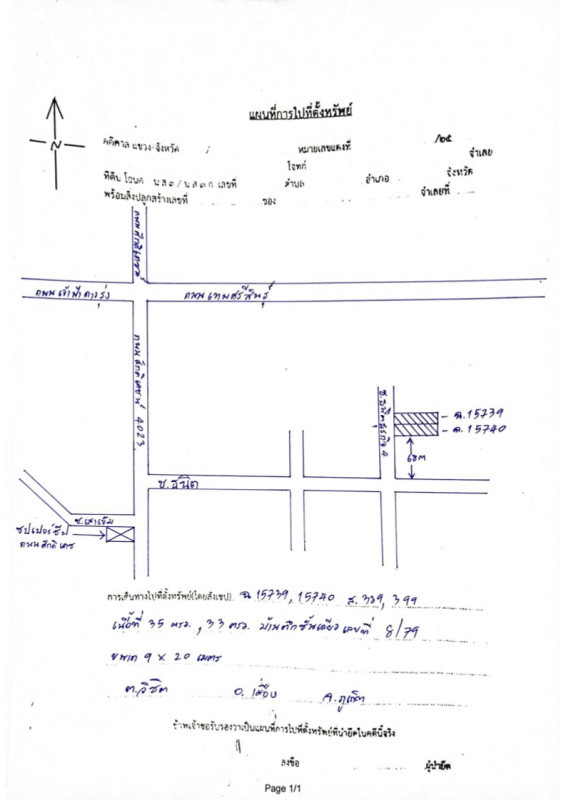 แผนที่การไปที่ตั้งทรัพย์
N
คดีศาล แขวง/จังหวัด หมายเลขแดงที่ /๒๕
โจทก์ จำเลย
ที่ดิน โฉนด น.ส.๓/น.ส.๓ ก เลขที่ ตำบล อำเภอ จังหวัด
พร้อมสิ่งปลูกสร้างเลขที่ ของ จำเลยที่
ถนนศักดิเดชน์
ถนนเจ้าฟ้า
ถนนเทพศรีสินธุ์
ถนนศักดิเดชน์ 4023
ซ.
4
ฉ.15739
ฉ.15740
68m
ซ.
ซ.เสาเข็ม
ซุปเปอร์ชีป
ถนนศักดิเดช
การเดินทางไปที่ตั้งทรัพย์(โดยสังเขป) ฉ.15739, 15740 ส.389, 399
เนื้อที่ 35 ตรว., 33 ตรว. บ้านตึกชั้นเดียว เลขที่ 8/79
ขนาด 9 x 20 เมตร
ต.วิชิต อ.เมือง จ.ภูเก็ต
ข้าพเจ้าขอรับรองว่าเป็นแผนที่การไปที่ตั้งทรัพย์ที่นำยึดในคดีนี้จริง
ลงชื่อ ผู้นำยึด
Page 1/1